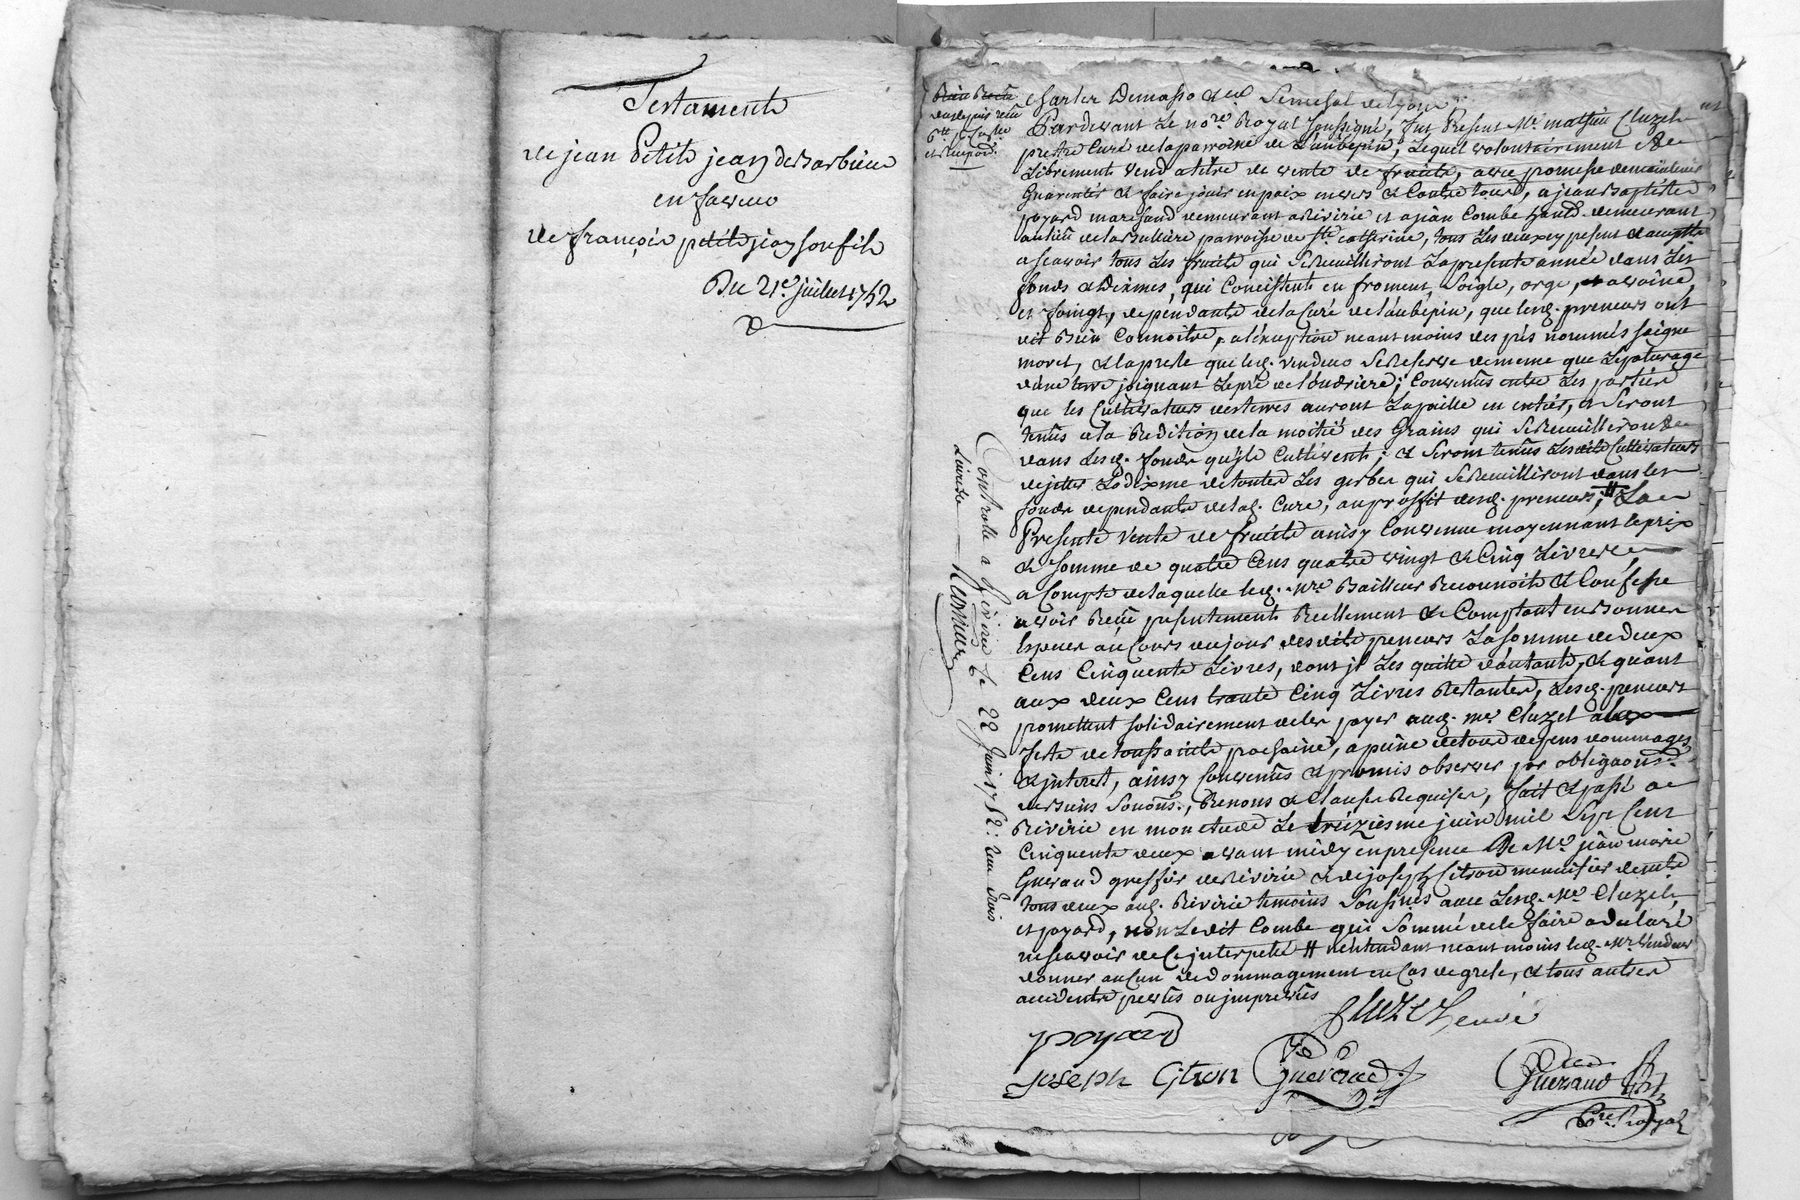 Testament
de jean Petit jean de Barbieu
en faveur
de françois petit jean son fils
Du 21e. juillet 1752
Pardevant Le nore. Royal soussigné, fut Present Mre. mathieu Cluzel
prestre Curé de la parroisse de L'aubepin, Lequel volontairement &
Librement vend a titre de vente de fruits, avec promesse de maintenir
Guarentir & faire jouir en paix envers & Contre tous, a jean Baptiste
joyard marchand demeurant a Rivirie et a jean Combe demeurant
au lieu de la parroisse de Ste. catherine, tous Les deux cy present & acceptts
a scavoir tous Les fruits qui se Recuilliront La presente année dans Les
fonds & Dixmes, qui Concistent en froment, Soigle, orge, avoine,
et foingt, dependants de la Curé de L'aubepin, que lesd. preneurs ont
dit Bien Connoitre, a l'exception neant moins des prés nommés saigne
moret, & la preste que led. vendeur se Reserve de meme que Le paturage
d'une terre joignant Le pré de ; Convenus entre Les parties
que les Cultivateurs des terres auront La paille en entier, et Seront
tenus a la Redition de la moitié des Grains qui se Recuilliront
dans Lesd. fonds qu'ils Cultivent ; & Seront tenus Lesdits Cultivateurs
de jetter La dixme de toutes Les gerbes qui se Recuilliront dans les
fonds dependants de lad. Cure, au proffit desd. preneurs ; # La
Presente Vente de fruits ainsy Convenue moyennant le prix
& somme de quatre Cens quatre vingt & Cinq Livres
a Compte de laquelle led. Mre. Bailleur Reconnoit & Confesse
avoir Reçu presentement Reellement & Comptant en Bonnes
Especes au Cours du jour desdits preneurs La somme de deux
Cens Cinquante Livres, dont jl Les quitte d'autant, & quant
aux deux Cens trante Cinq Livres Restantes, Lesd. preneurs
promettent solidairement de les payer aud. mre. Cluzel a la
feste de toussaints prochaine, a peine de tous depens dommages
& jnterest, ainsy Convenus & promis observer par obligaons.
de biens Renons & Clauses Requises, fait & passé a
Rivirie en mon etude Le treiziesme juin mil Sept Cent
Cinquante deux avant midy en presence de Mre. jean marie
Gueraud greffier de Rivirie & de joseph Citron menuisier
tous deux aud. Rivirie temoins Soussinés avec Led. Mre. Cluzel,
et joyard, non Ledit Combe qui Sommé de le faire a declaré
ne scavoir de Ce jnterpellé # n'entendant neant moins led. Mre. Vendeur
donner aucun dedommagement en Cas de grele, & tous autres
accidents prevûs ou jmprevûs
Cluzel Curé
joyard
Joseph Citron Gueraud
Gueraud
Nre. Royal
Controllé a Rivirie Le 22 Juin 1752 :